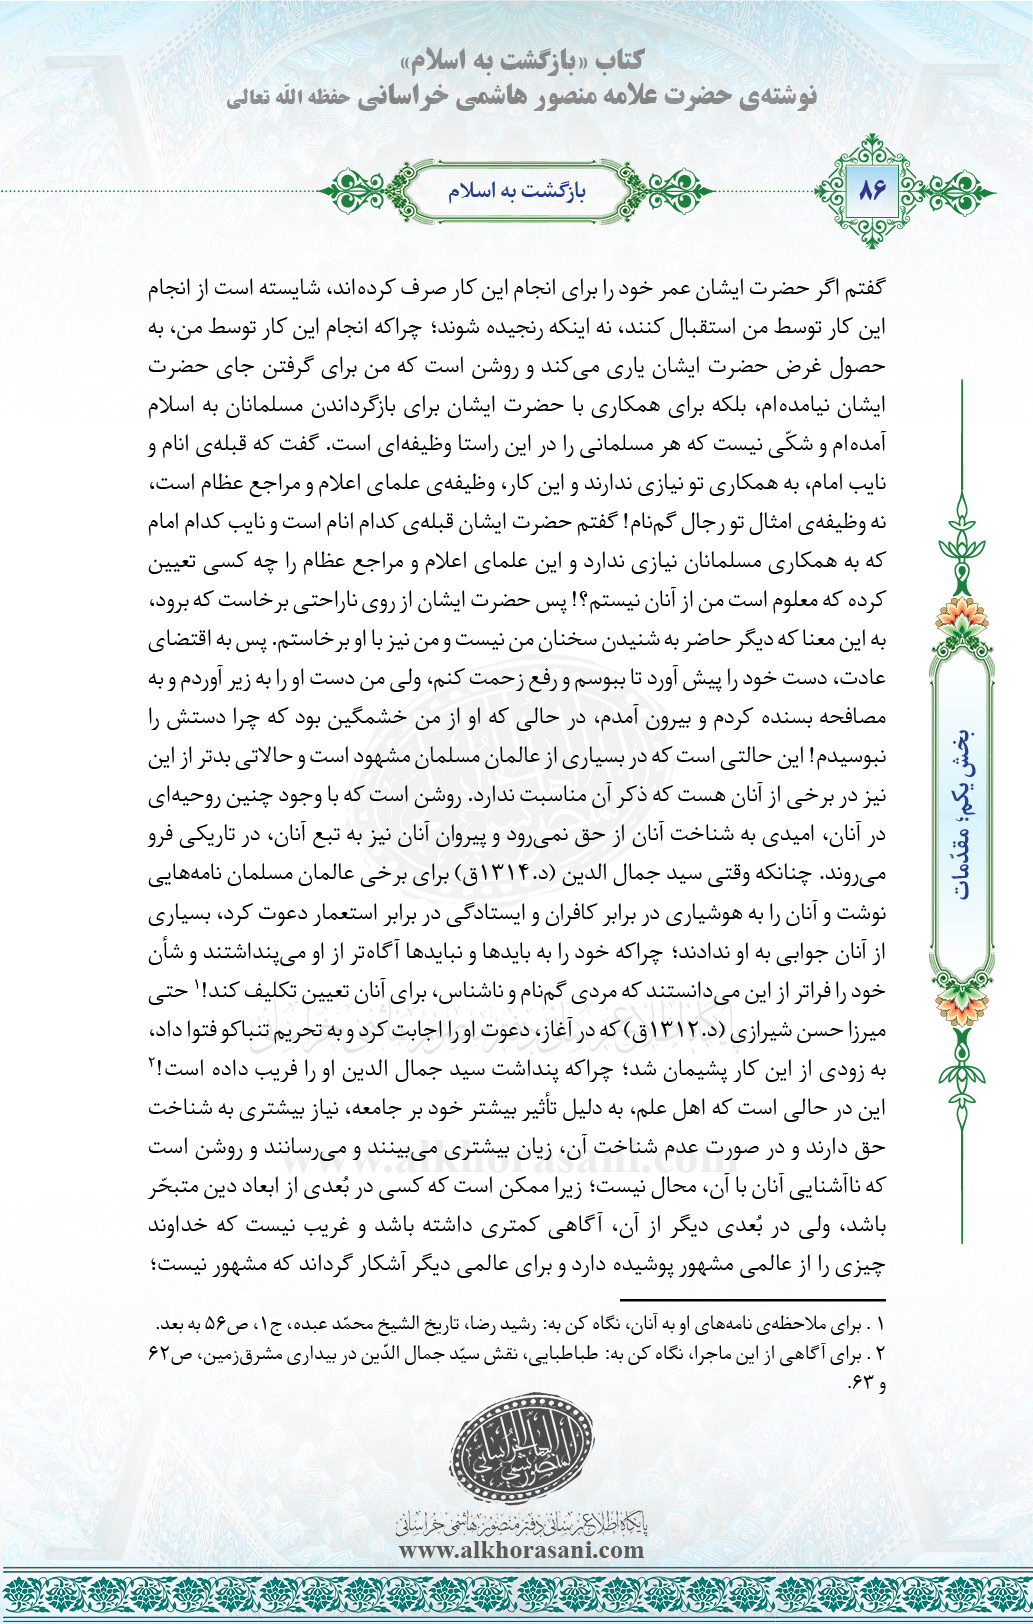 کتاب «بازگشت به اسلام»
نوشته‌ی حضرت علامه منصور هاشمی خراسانی حفظه الله تعالی
۸۶
بازگشت به اسلام
گفتم اگر حضرت ایشان عمر خود را برای انجام این کار صرف کرده‌اند، شایسته است از انجام
این کار توسط من استقبال کنند، نه اینکه رنجیده شوند؛ چراکه انجام این کار توسط من، به
حصول غرض حضرت ایشان یاری می‌کند و روشن است که من برای گرفتن جای حضرت
ایشان نیامده‌ام، بلکه برای همکاری با حضرت ایشان برای بازگرداندن مسلمانان به اسلام
آمده‌ام و شکّی نیست که هر مسلمانی را در این راستا وظیفه‌ای است. گفت که قبله‌ی انام و
نایب امام، به همکاری تو نیازی ندارند و این کار، وظیفه‌ی علمای اعلام و مراجع عظام است،
نه وظیفه‌ی امثال تو رجال گم‌نام! گفتم حضرت ایشان قبله‌ی کدام انام است و نایب کدام امام
که به همکاری مسلمانان نیازی ندارد و این علمای اعلام و مراجع عظام را چه کسی تعیین
کرده که معلوم است من از آنان نیستم؟! پس حضرت ایشان از روی ناراحتی برخاست که برود،
به این معنا که دیگر حاضر به شنیدن سخنان من نیست و من نیز با او برخاستم. پس به اقتضای
عادت، دست خود را پیش آورد تا ببوسم و رفع زحمت کنم، ولی من دست او را به زیر آوردم و به
مصافحه بسنده کردم و بیرون آمدم، در حالی که او از من خشمگین بود که چرا دستش را
نبوسیدم! این حالتی است که در بسیاری از عالمان مسلمان مشهود است و حالاتی بدتر از این
نیز در برخی از آنان هست که ذکر آن مناسبت ندارد. روشن است که با وجود چنین روحیه‌ای
در آنان، امیدی به شناخت آنان از حق نمی‌رود و پیروان آنان نیز به تبع آنان، در تاریکی فرو
می‌روند. چنانکه وقتی سید جمال الدین (د.۱۳۱۴ق) برای برخی عالمان مسلمان نامه‌هایی
نوشت و آنان را به هوشیاری در برابر کافران و ایستادگی در برابر استعمار دعوت کرد، بسیاری
از آنان جوابی به او ندادند؛ چراکه خود را به بایدها و نبایدها آگاه‌تر از او می‌پنداشتند و شأن
خود را فراتر از این می‌دانستند که مردی گم‌نام و ناشناس، برای آنان تعیین تکلیف کند!۱ حتی
میرزا حسن شیرازی (د.۱۳۱۲ق) که در آغاز، دعوت او را اجابت کرد و به تحریم تنباکو فتوا داد،
به زودی از این کار پشیمان شد؛ چراکه پنداشت سید جمال الدین او را فریب داده است!۲
این در حالی است که اهل علم، به دلیل تأثیر بیشتر خود بر جامعه، نیاز بیشتری به شناخت
حق دارند و در صورت عدم شناخت آن، زیان بیشتری می‌بینند و می‌رسانند و روشن است
که ناآشنایی آنان با آن، محال نیست؛ زیرا ممکن است که کسی در بُعدی از ابعاد دین متبحّر
باشد، ولی در بُعدی دیگر از آن، آگاهی کمتری داشته باشد و غریب نیست که خداوند
چیزی را از عالمی مشهور پوشیده دارد و برای عالمی دیگر آشکار گرداند که مشهور نیست؛
بخش یکم؛ مقدّمات
۱ . برای ملاحظه‌ی نامه‌های او به آنان، نگاه کن به: رشید رضا، تاریخ الشیخ محمّد عبده، ج۱، ص۵۶ به بعد.
۲ . برای آگاهی از این ماجرا، نگاه کن به: طباطبایی، نقش سیّد جمال الدّین در بیداری مشرق‌زمین، ص۶۲
و ۶۳.
المنصور الهاشمي الخراساني
پایگاه اطلاع‌رسانی دفتر منصور هاشمی خراسانی
www.alkhorasani.com